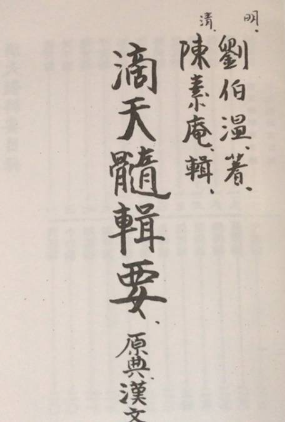 明、劉伯溫、著、
清、陳素庵、輯、
滴天髓輯要、原典、漢文